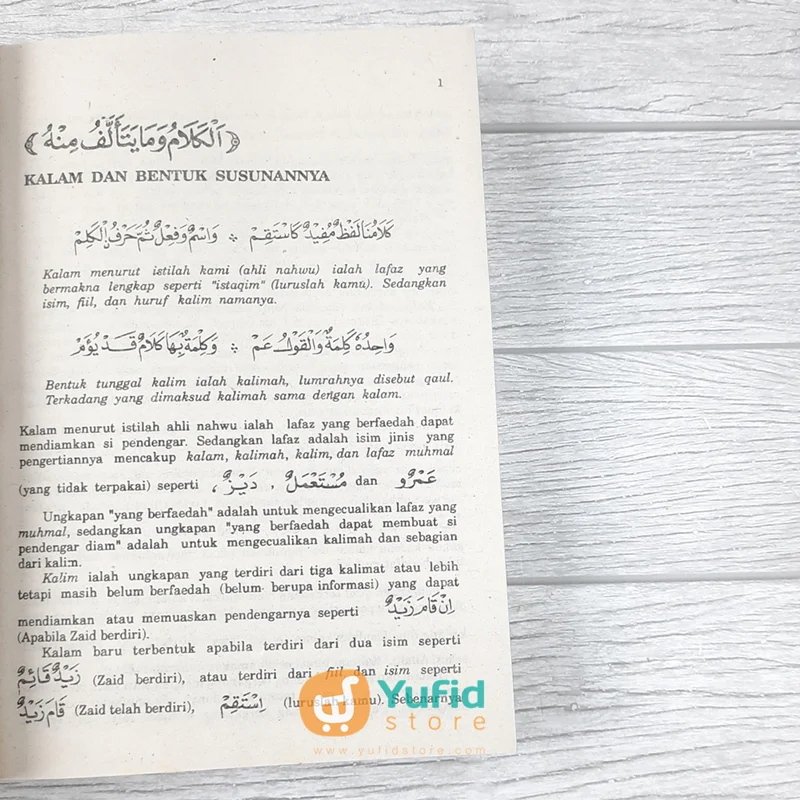 1
﴿ اَلْكَلَامُ وَمَا يَتَأَلَّفُ مِنْهُ ﴾
KALAM DAN BENTUK SUSUNANNYA
كَلَامُنَا لَفْظٌ مُفِيْدٌ كَاسْتَقِمْ ❖ وَاسْمٌ وَفِعْلٌ ثُمَّ حَرْفُ ࣙالْكَلِمْ
Kalam menurut istilah kami (ahli nahwu) ialah lafaz yang
bermakna lengkap seperti "istaqim" (luruslah kamu). Sedangkan
isim, fiil, dan huruf kalim namanya.
وَاحِدُهُ كَلِمَةٌ وَالْقَوْلُ عَمْ ❖ وَكَلِمَةٌ بِهَا كَلَامٌ قَدْ يُؤَمْ
Bentuk tunggal kalim ialah kalimah, lumrahnya disebut qaul.
Terkadang yang dimaksud kalimah sama dengan kalam.
Kalam menurut istilah ahli nahwu ialah lafaz yang berfaedah dapat
mendiamkan si pendengar. Sedangkan lafaz adalah isim jinis yang
pengertiannya mencakup kalam, kalimah, kalim, dan lafaz muhmal
(yang tidak terpakai) seperti دَيْزٌ , مُسْتَعْمَلٌ dan عَمْرٌو
Ungkapan "yang berfaedah" adalah untuk mengecualikan lafaz yang
muhmal, sedangkan ungkapan "yang berfaedah dapat membuat si
pendengar diam" adalah untuk mengecualikan kalimah dan sebagian
dari kalim.
Kalim ialah ungkapan yang terdiri dari tiga kalimat atau lebih
tetapi masih belum berfaedah (belum berupa informasi) yang dapat
mendiamkan atau memuaskan pendengarnya seperti اِنْ قَامَ زَيْدٌ
(Apabila Zaid berdiri).
Kalam baru terbentuk apabila terdiri dari dua isim seperti
زَيْدٌ قَائِمٌ (Zaid berdiri), atau terdiri dari fiil dan isim seperti
قَامَ زَيْدٌ (Zaid telah berdiri), اِسْتَقِمْ (luruslah kamu). Sebenarnya
Yufid
store
www.yufidstore.com